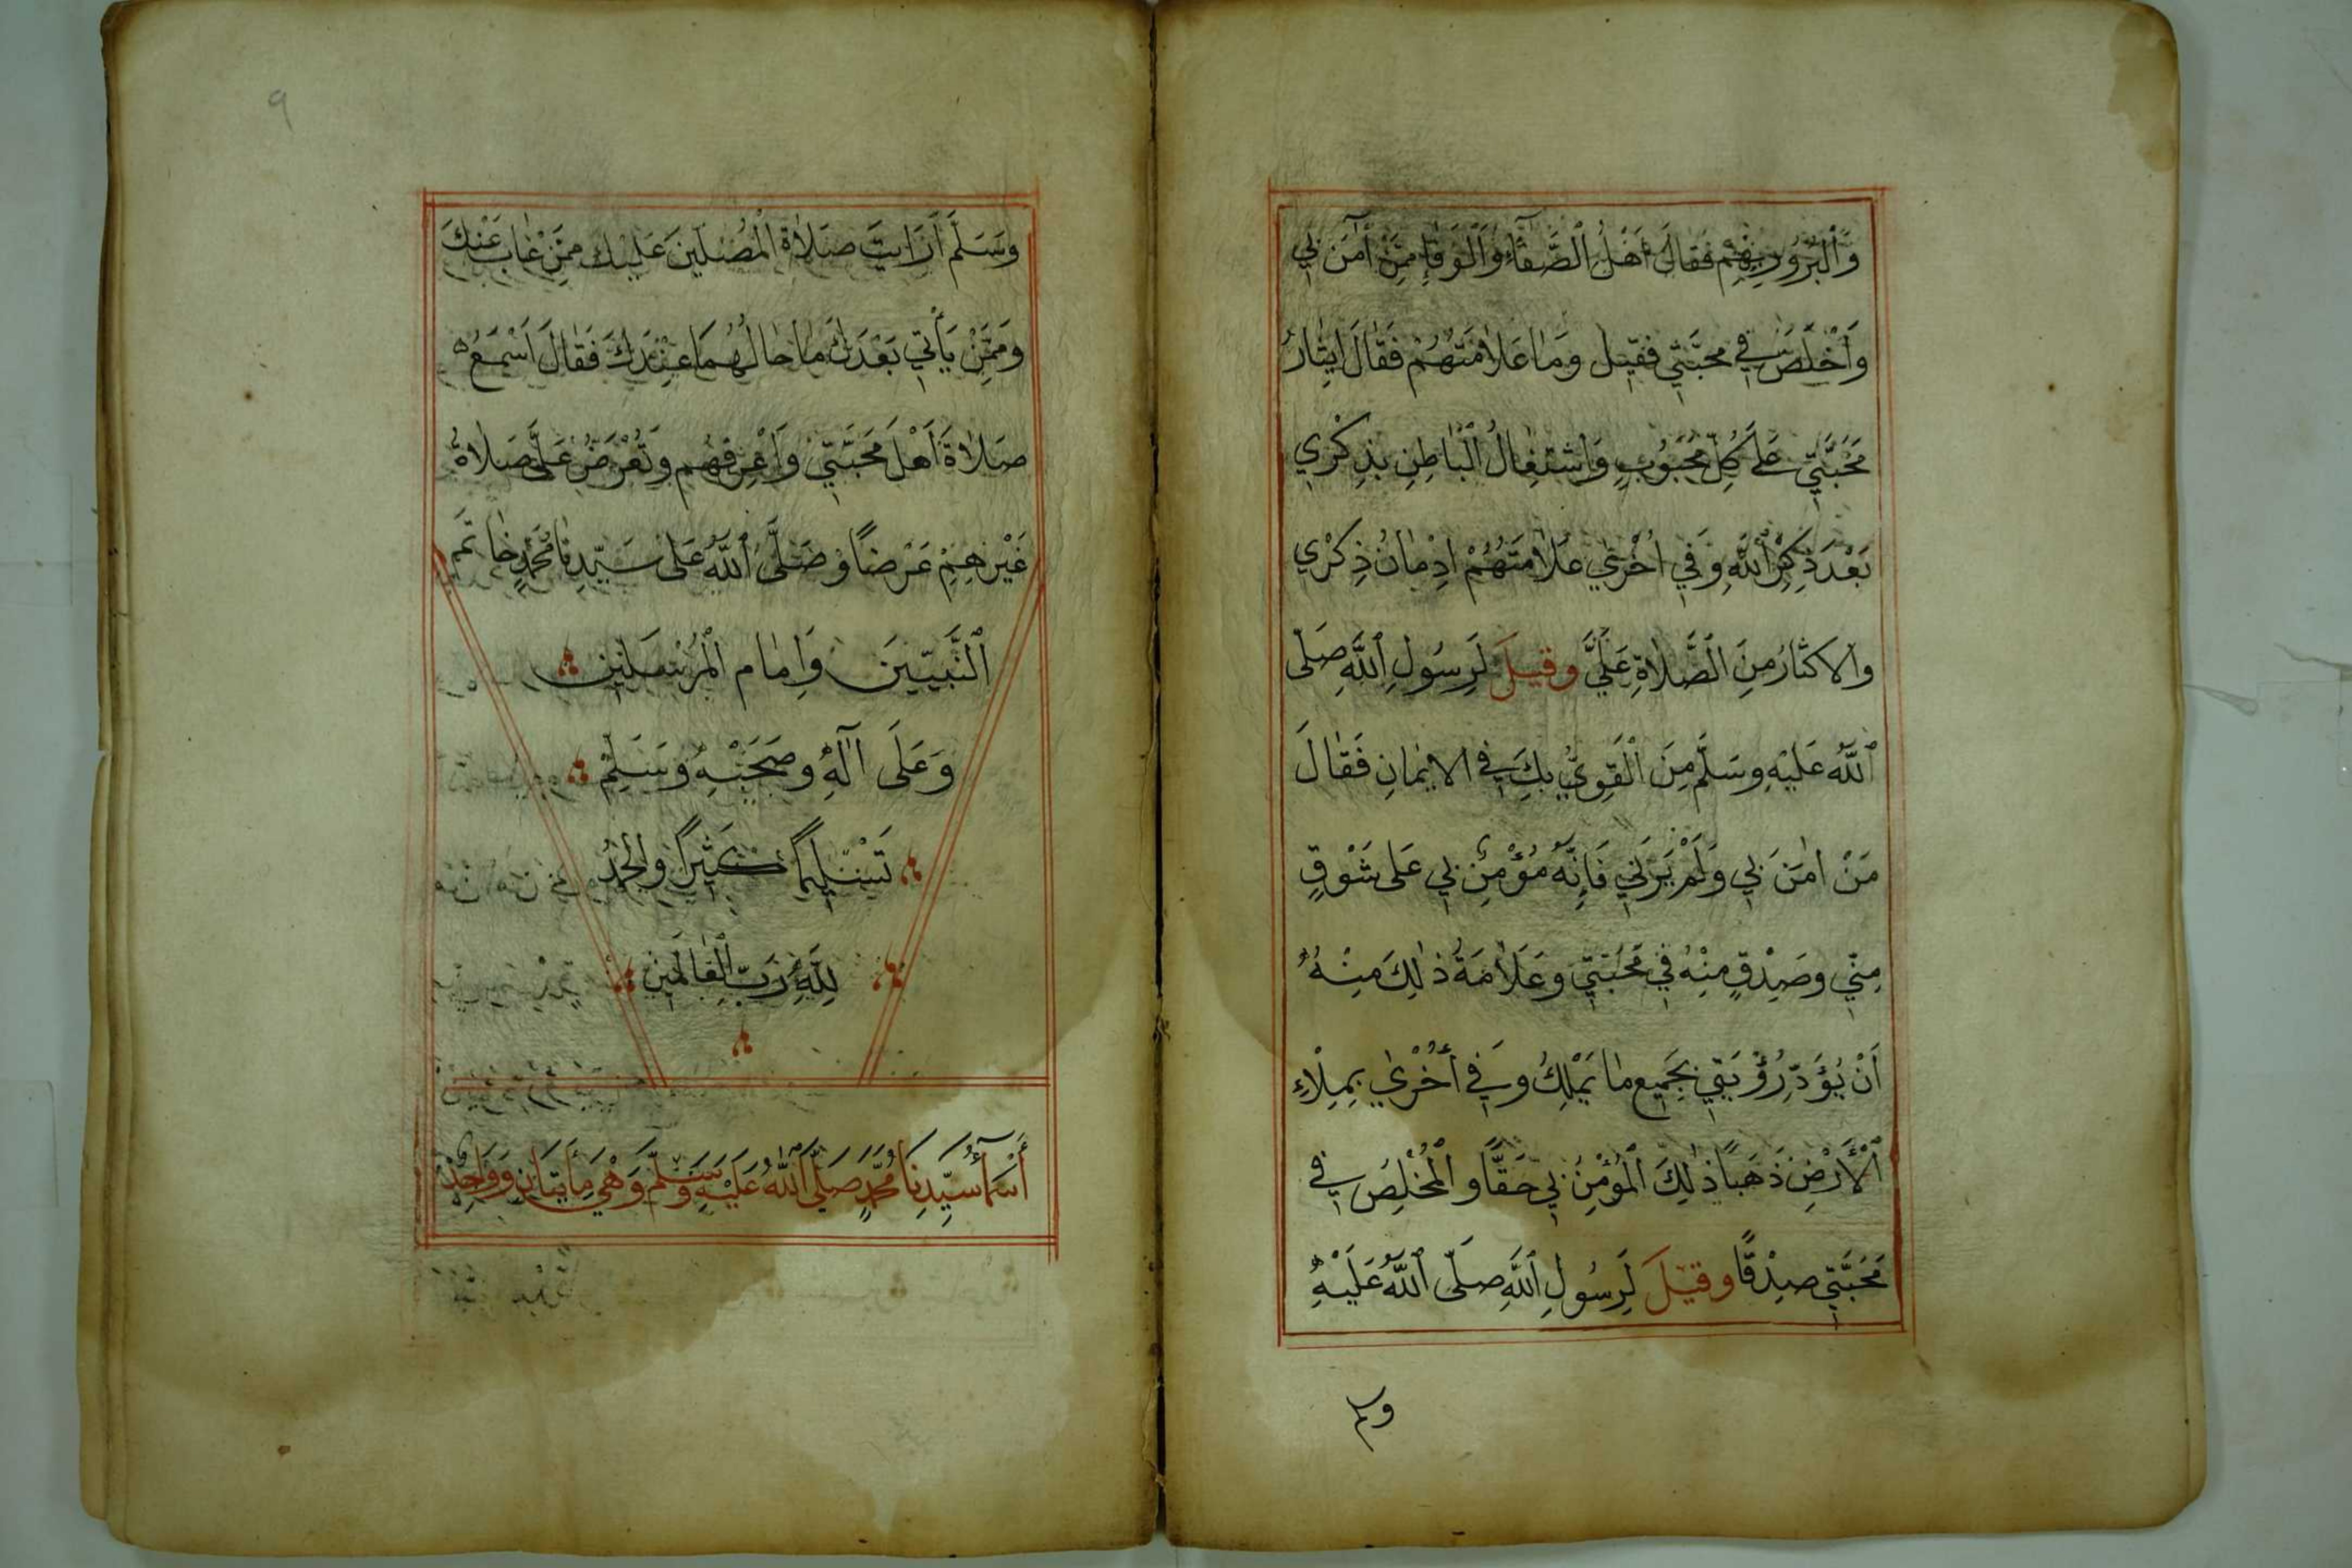 وَالْبُرُورِ بِهِمْ فَقَالَ أَهْلُ الصَّفَاءِ وَالْوَفَاءِ مَنْ آمَنَ بِي
وَأَخْلَصَ فِي مَحَبَّتِي فَقِيلَ وَمَا عَلَامَتُهُمْ فَقَالَ اِيثَارُ
مَحَبَّتِي عَلَى كُلِّ مَحْبُوبٍ وَاشْتِغَالُ الْبَاطِنِ بِذِكْرِي
بَعْدَ ذِكْرِ اللَّهِ وَفِي اُخْرَى عَلَامَتُهُمْ اِدْمَانُ ذِكْرِي
وَالاِكْثَارُ مِنَ الصَّلَاةِ عَلَيَّ وَقِيلَ لِرَسُولِ اللَّهِ صَلَّى
اللَّهُ عَلَيْهِ وَسَلَّمَ مَنِ الْقَوِيُّ بِكَ فِي الاِيمَانِ فَقَالَ
مَنْ اٰمَنَ بِي وَلَمْ يَرَنِي فَإِنَّهُ مُؤْمِنٌ بِي عَلَى شَوْقٍ
مِنِّي وَصِدْقٍ مِنْهُ فِي مَحَبَّتِي وَعَلَامَةُ ذٰلِكَ مِنْهُ
اَنْ يُؤَدَّ رُؤْيَتِي بِجَمِيعِ مَا يَمْلِكُ وَفِي أُخْرَى بِمِلْاءِ
الْأَرْضِ ذَهَبًا ذٰلِكَ الْمُؤْمِنُ بِي حَقًّا وَالْمُخْلِصُ فِي
مَحَبَّتِي صِدْقًا وَقِيلَ لِرَسُولِ اللَّهِ صَلَّى اللَّهُ عَلَيْهِ
وسلم
٩
وَسَلَّمَ أَرَأَيْتَ صَلَاةَ الْمُصَلِّينَ عَلَيْكَ مِمَّنْ غَابَ عَنْكَ
وَمِمَّنْ يَأْتِي بَعْدَكَ مَا حَالُهُمَا عِنْدَكَ فَقَالَ اَسْمَعُ
صَلَاةَ أَهْلِ مَحَبَّتِي وَأَعْرِفُهُمْ وَتُعْرَضُ عَلَيَّ صَلَاةُ
غَيْرِهِمْ عَرْضًا وَصَلَّى اللَّهُ عَلَى سَيِّدِنَا مُحَمَّدٍ خَاتَمِ
النَّبِيِّينَ وَاِمَامِ الْمُرْسَلِينَ
وَعَلَى اٰلِهِ وَصَحْبِهِ وَسَلِّمْ
تَسْلِيمًا كَثِيرًا وَالْحَمْدُ
لِلَّهِ رَبِّ الْعَالَمِينَ
أَسْمَآءُ سَيِّدِنَا مُحَمَّدٍ صَلَّى اللَّهُ عَلَيْهِ وَسَلَّمَ وَهْيَ مِأَيتَانِ وَوَاحِدٌ